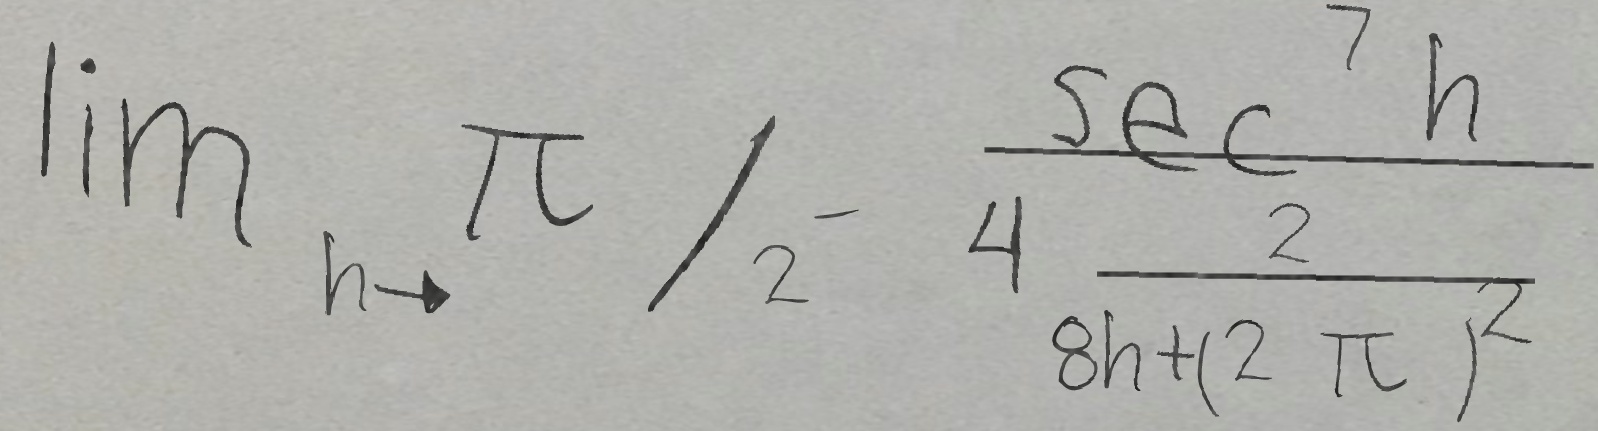 \lim_{h \to \pi/2^-} \frac{\sec^7 h}{4 \frac{2}{8h+(2\pi)^2}}